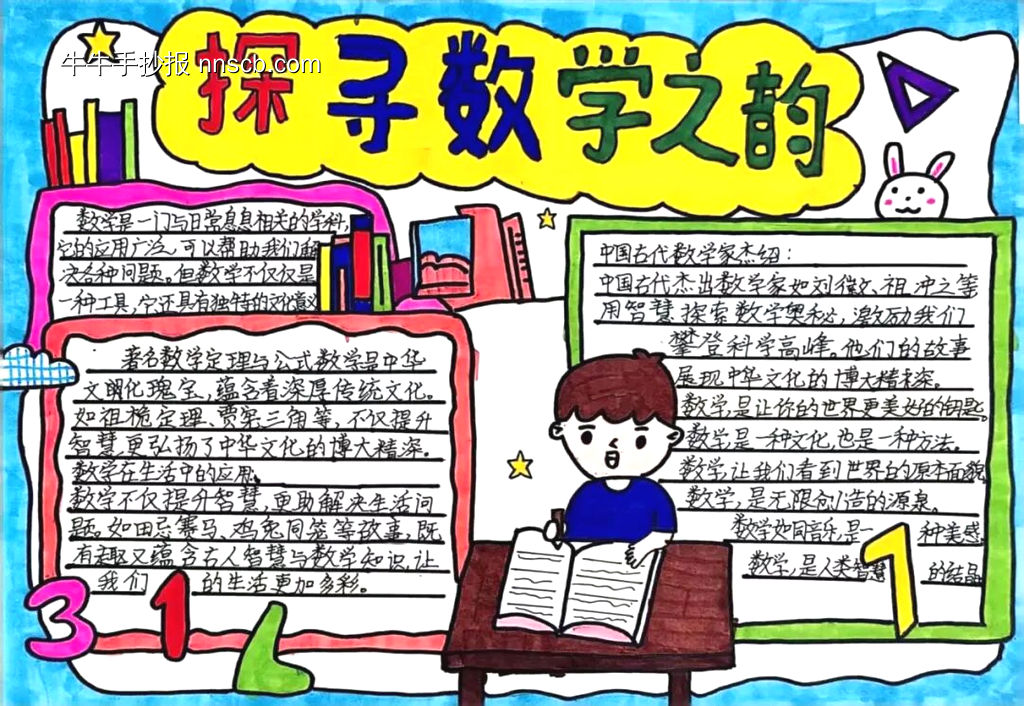 牛牛手抄报 nnscb.com
探寻数学之韵
数学是一门与日常息息相关的学科,
它的应用广泛,可以帮助我们解
决各种问题。但数学不仅仅是
一种工具,它还具有独特的文化意义
著名数学定理与公式数学是中华
文明化瑰宝,蕴含着深厚传统文化。
如祖桅定理、贾宪三角等,不仅提升
智慧,更弘扬了中华文化的博大精深。
数学在生活中的应用:
数学不仅提升智慧,更助解决生活问
题。如田忌赛马、鸡兔同笼等故事,既
有趣又蕴含古人智慧与数学知识,让
我们 的生活更加多彩。
中国古代数学家杰绍:
中国古代杰出数学家如刘徽、祖冲之等
用智慧探索数学奥秘,激励我们
攀登科学高峰。他们的故事
展现中华文化的博大精深。
数学,是让你的世界更美好的钥匙。
数学,是一种文化,也是一种方法。
数学,让我们看到世界的原本面貌
数学,是无限创造的源泉。
数学如同音乐,是一 种美感,
数学,是人类智慧 的结晶
3 1 6
7